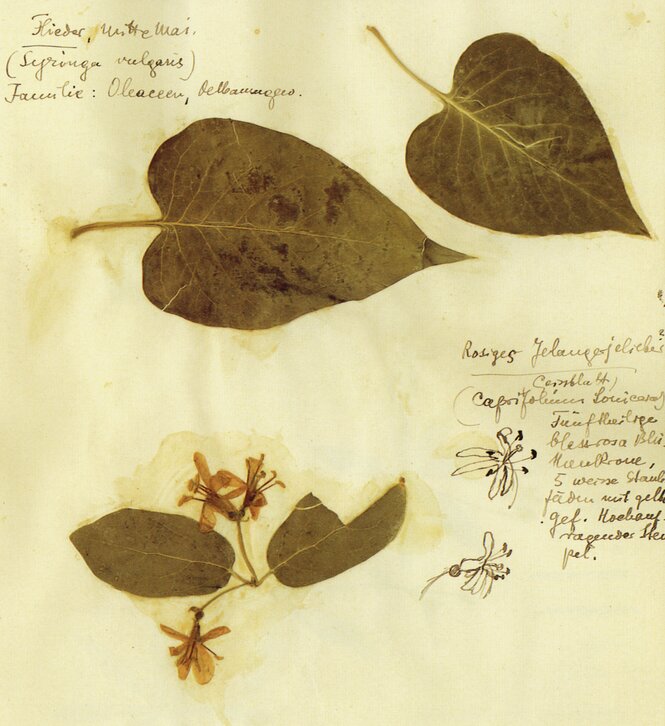 Flieder, Mitte Mai.
(Syringa vulgaris)
Familie: Oleaceen, Oelbaumgew.
Rosiges Jelängerjelieber
Geissblatt)
(Caprifolium Lonicera)
Fünftheilige
blassrosa Blu
menkrone,
5 weisse Staub
fäden mit gelb
gef. Hochauf
ragender Stem
pel.